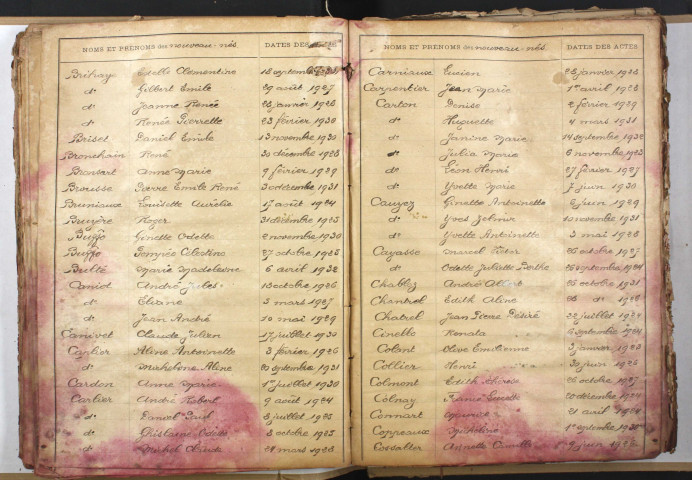 NOMS ET PRÉNOMS des nouveau-nés DATES DES
Brihaye Estelle Clementine 18 septembre
d° Gilbert Emile 29 août 1927
d° Jeanne Renée 28 janvier 1928
d° Renée Pierrette 23 février 1930
Briset Daniel Emile 13 novembre 1930
Bronchain René 30 décembre 1928
Bronsart Anne Marie 9 février 1929
Brousse Pierre Emile René 3 octobre 1931
Bruniaux Louisette Aurélie 17 août 1924
Bruyère Roger 31 décembre 1925
Buffo Ginette Odette 2 novembre 1930
Buffo Pompée Celestino 27 octobre 1925
Bulté Marie Madeleine 6 avril 1932
Canid André Jules 16 octobre 1926
d° Eliane 5 mars 1927
d° Jean André 10 mai 1929
Canivet Claude Julien 17 juillet 1930
Carlier Aline Antoinette 3 février 1926
d° Michelène Aline 20 septembre 1931
Cardon Anne Marie 1er juillet 1930
Carlier André Robert 9 août 1924
d° Daniel Paul 8 juillet 1925
d° Ghislaine Odette 5 octobre 1925
d° Michel 21 mars 1928
NOMS ET PRÉNOMS des nouveau-nés DATES DES ACTES
Carniaux Lucien 28 janvier 1928
Carpentier Jean Marie 1er avril 1928
Carton Denise 2 février 1929
d° Huguette 4 mars 1931
d° Janine Marie 14 septembre 1932
d° Julia Marie 6 novembre 1923
d° Léon Henri 27 février 1927
d° Yvette Marie 7 juin 1930
Cauyez Ginette Antoinette 2 juin 1929
d° Yves Zelmir 10 novembre 1931
d° Yvette Antoinette 3 mai 1928
Cayasse Marcel Victor 26 octobre 1927
d° Odette Juliette Berthe 26 septembre 1924
Chablez André Albert 26 octobre 1931
Chentrel Edith Aline
Chatrel Jean Pierre Désiré 22 juillet 1924
Cinello Renata 6 septembre 1924
Colant Olive Emilienne 3 janvier 1923
Collier Henri 30 juin 1926
Colmont Edith Thérèse 26 octobre 1927
Colnay 20 décembre 1924
Connart Maurice 21 avril 1924
Coppeaux Micheline 1er septembre 1930
Cossalter Annette Camille 9 juin 1926